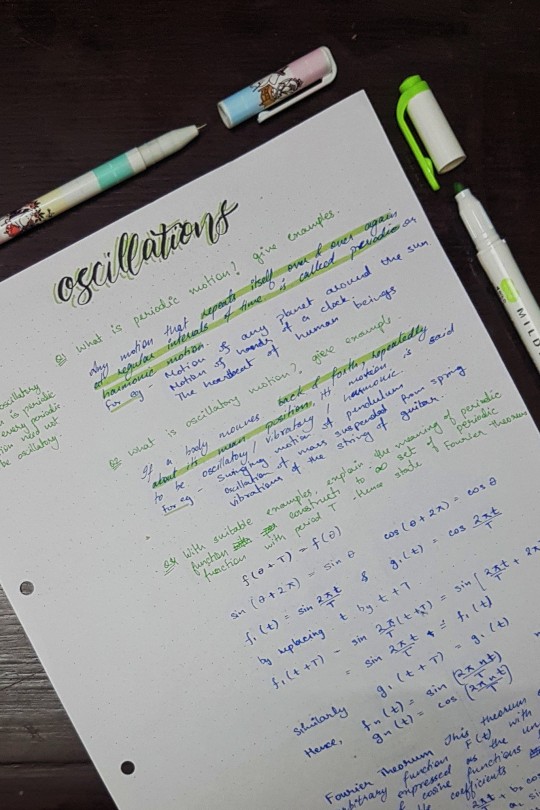 oscillations
Q1 What is periodic motion? give examples.
Any motion that repeats itself over & over again
at regular intervals of time is called periodic or
harmonic motion.
For eg Motion of any planet around the sun
Motion of hands of a clock
The heartbeat of human beings
oscillatory
is periodic
every periodic
need not
be oscillatory.
Q2 What is oscillatory motion?, give example
If a body moves back & forth, repeatedly
about its mean position, its motion is said
to be oscillatory / vibratory / harmonic.
For eg - Swinging motion of pendulum
oscillation of mass suspended from spring
vibrations of the string of guitar.
With suitable examples, explain the meaning of periodic
function construct to ∞ set of periodic
function with period T. Hence state Fourier theorem
f(θ+T) = f(θ)
sin (θ+2π) = sin θ cos (θ+2π) = cos θ
f₁(t) = sin 2πt/T & g₁(t) = cos 2πt/T
by replacing t by t+T
f₁(t+T) = sin 2π/T (t+T) = sin [2πt/T + 2π
= sin 2πt/T = f₁(t)
Similarly g₁(t+T) = g₁(t)
Hence, fₙ(t) = sin (2πnt/T)
gₙ(t) = cos (2πnt/T)
Fourier Theorem This theorem
arbitrary function F(t) with
expressed as the
cosine functions
coefficients
MILD